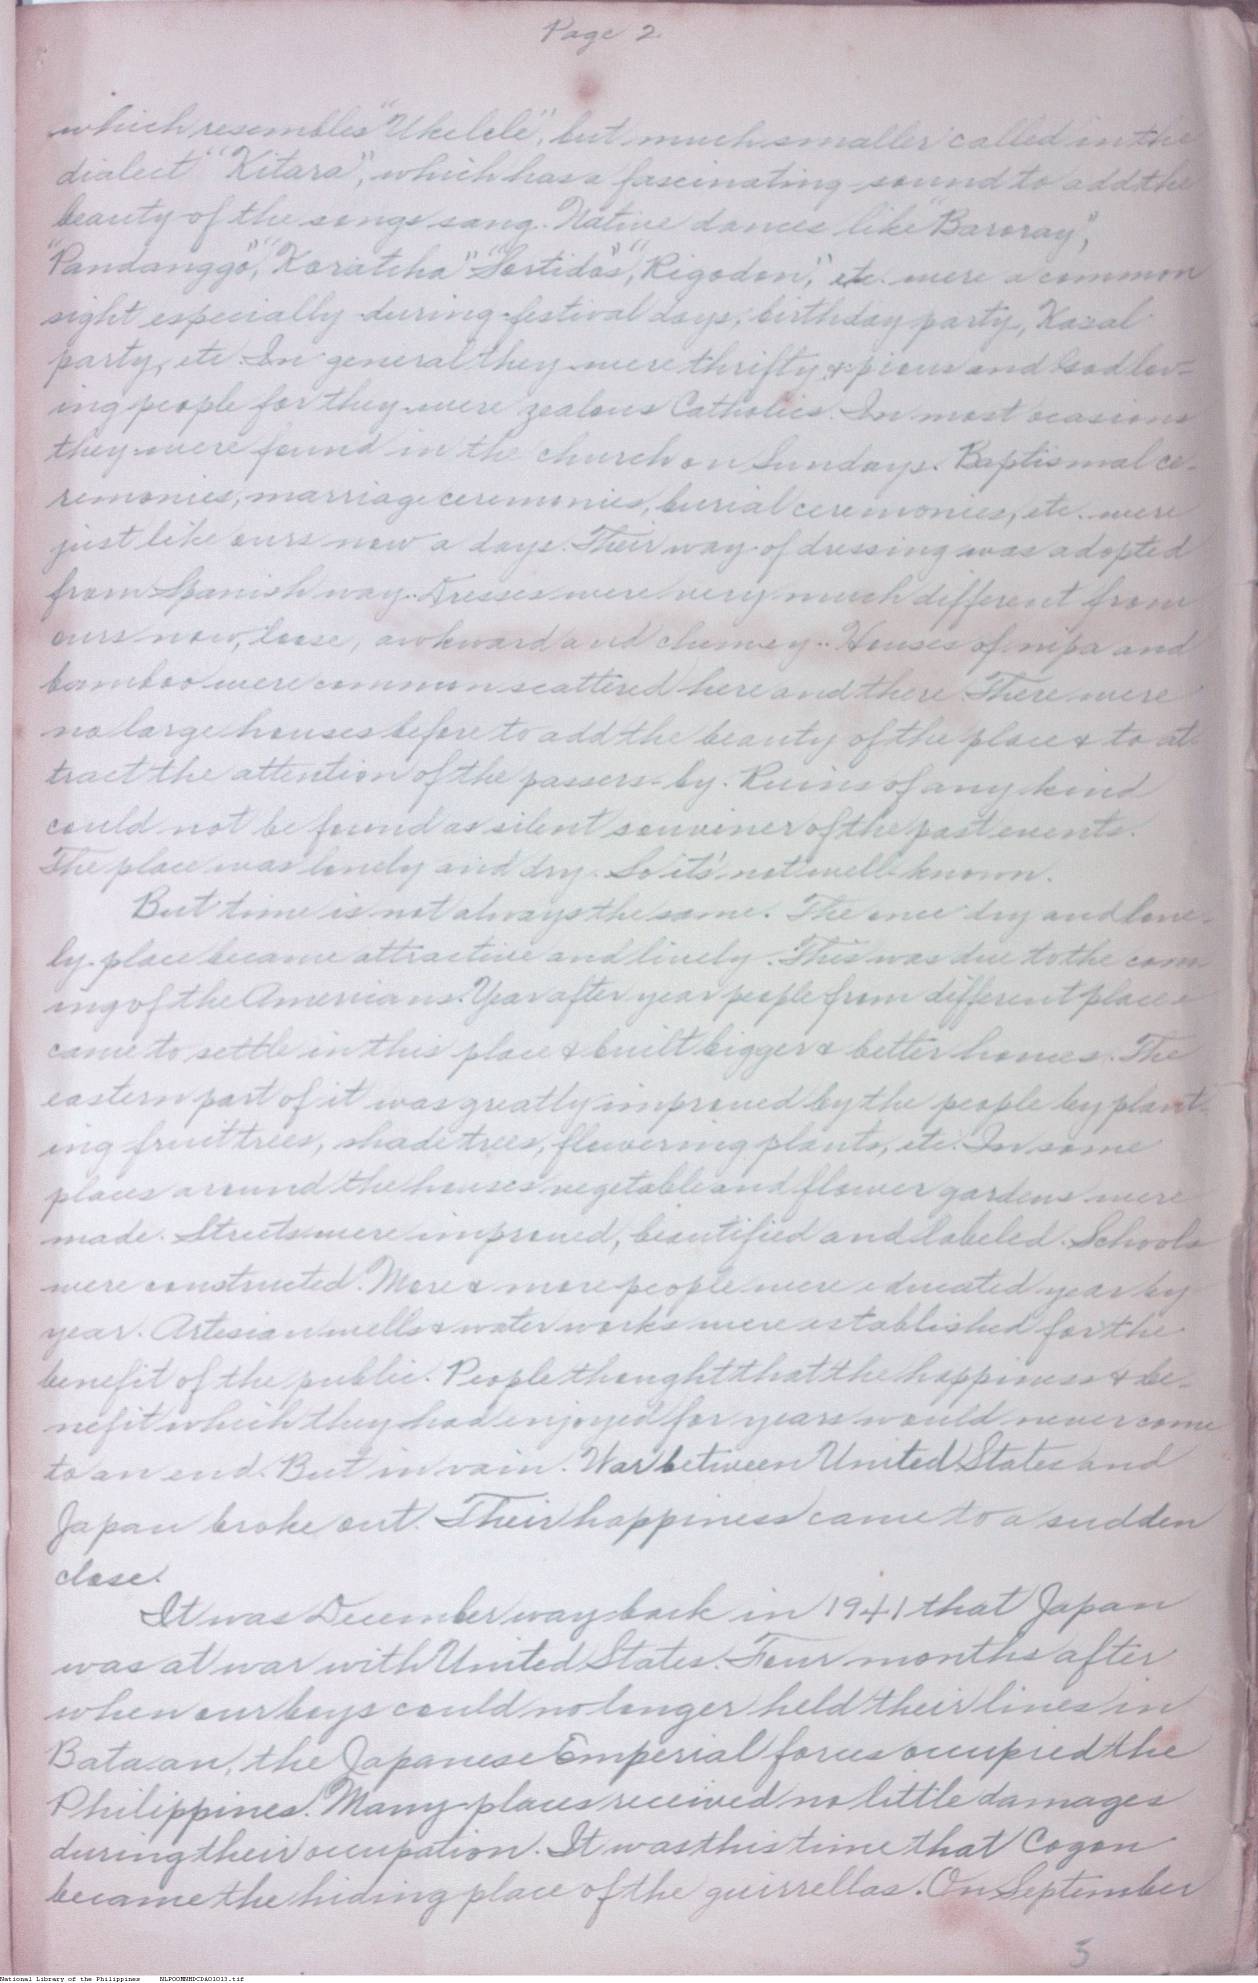 Page 2
which resembles "Ukelele", but much smaller called in the
dialect "Kitara", which has a fascinating sound to add the
beauty of the songs sang. Native dances like "Baroray",
"Pandanggo", "Koratcha" "Sortidos", "Rigodon," etc. were a common
sight especially during festival days, birthday party, Kasal
party, etc. In general they were thrifty & pious and God lov-
ing people for they were zealous Catholics. In most ocasions
they were found in the church on Sundays. Baptismal ce-
remonies, marriage ceremonies, burial ceremonies, etc. were
just like ours now a days. Their way of dressing was adopted
from Spanish way. Dresses were very much different from
ours now, loose, awkward and clumsy. Houses of nipa and
bamboo were common scattered here and there. There were
no large houses before to add the beauty of the place & to at
tract the attention of the passers-by. Ruins of any kind
could not be found as silent souviner of the past events.
The place was lonely and dry. So its' not well known.
But time is not always the same. The once dry and lone-
ly place became attractive and lively. This was due to the com
ing of the Americans. Year after year people from different places
came to settle in this place & built bigger & better homes. The
eastern part of it was greatly improved by the people by plant-
ing fruit trees, shade trees, flowering plants, etc. In some
places around the houses vegetable and flower gardens were
made. Streets were improved, beautified and labeled. Schools
were constructed. More & more people were educated year by
year. Artesian wells & water works were established for the
benefit of the public. People thought that the happiness & be-
nefit which they had enjoyed for years would never come
to an end. But in vain. War between United States and
Japan broke out. Their happiness came to a sudden
close.
It was December way back in 1941 that Japan
was at war with United States. Four months after
when our boys could no longer held their lines in
Bataan, the Japanese Emperial forces occupied the
Philippines. Many places received no little damages
during their occupation. It was this time that Cogon
became the hiding place of the guirrellas. On September
5
National Library of the Philippines NLPOOMNHDCDA01013.tif